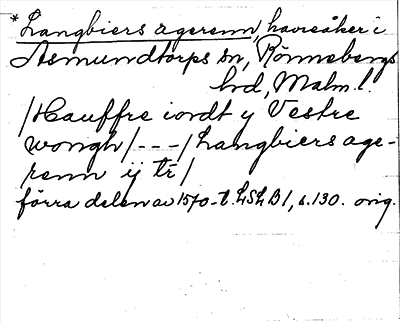 *Langbiers agerenn, havreåker i
Asmundtorps sn, Rönnebergs
hd, Malm. l.
/Hauffre iordt y Vestre
wongh/---/Langbiers age-
renn ij tr/
förra delen av 1570-t. LSLB 1, s. 130. orig.